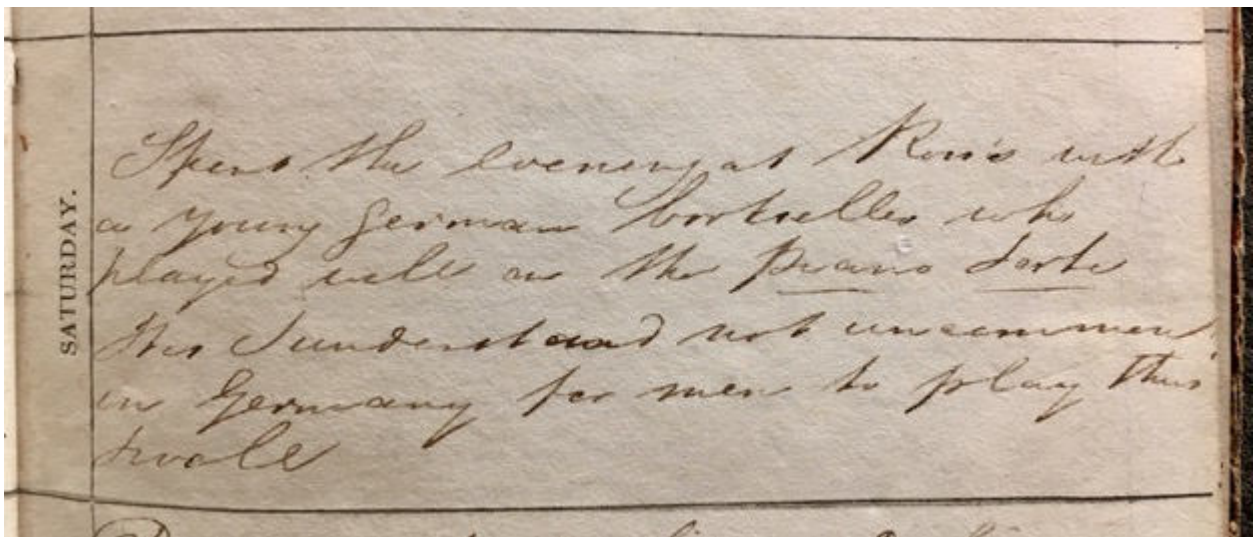 SATURDAY.
Spent the evening at Ross's with
a young German bookseller who
played well on the Piano forte
It is I understand not uncommon
in Germany for men to play thus